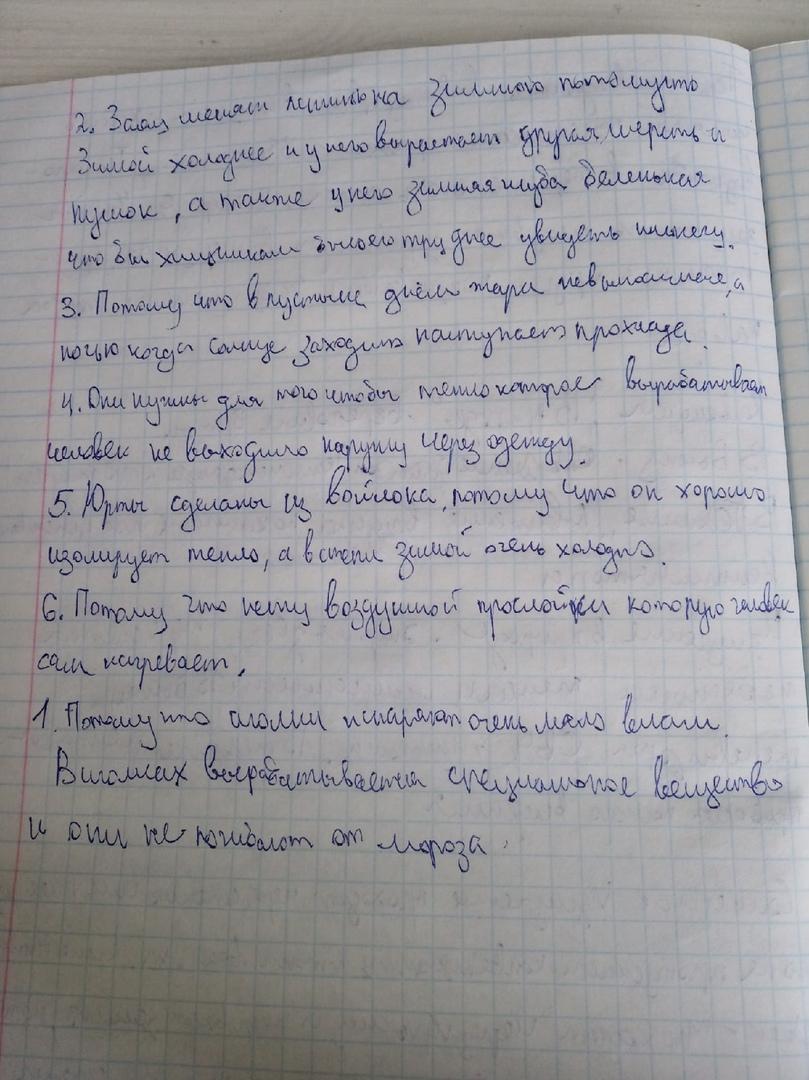 2. Заяц меняет летнию на зимнюю потомучто
Зимой холоднее и у него вырастает другая шерсть и
пушок, а также у него зимняя шуба беленькая
что бы хищникам было его труднее увидеть
3. Потому что в пустыне днём жара невыносимая, а
ночью когда солнце заходит наступает прохлада.
4. Они нужны для того чтобы тепло которое вырабатывает
человек не выходило наружу через одежду.
5. Юрты сделаны из войлока, потому что он хорошо
изолирует тепло, а в степи зимой очень холодно.
6. Потому что нету воздушной прослойки которую человек
сам нагревает.
1. Потому что иголки испаряют очень мало влаги.
В иголках вырабатывается специальное вещество
и они не погибают от мороза.